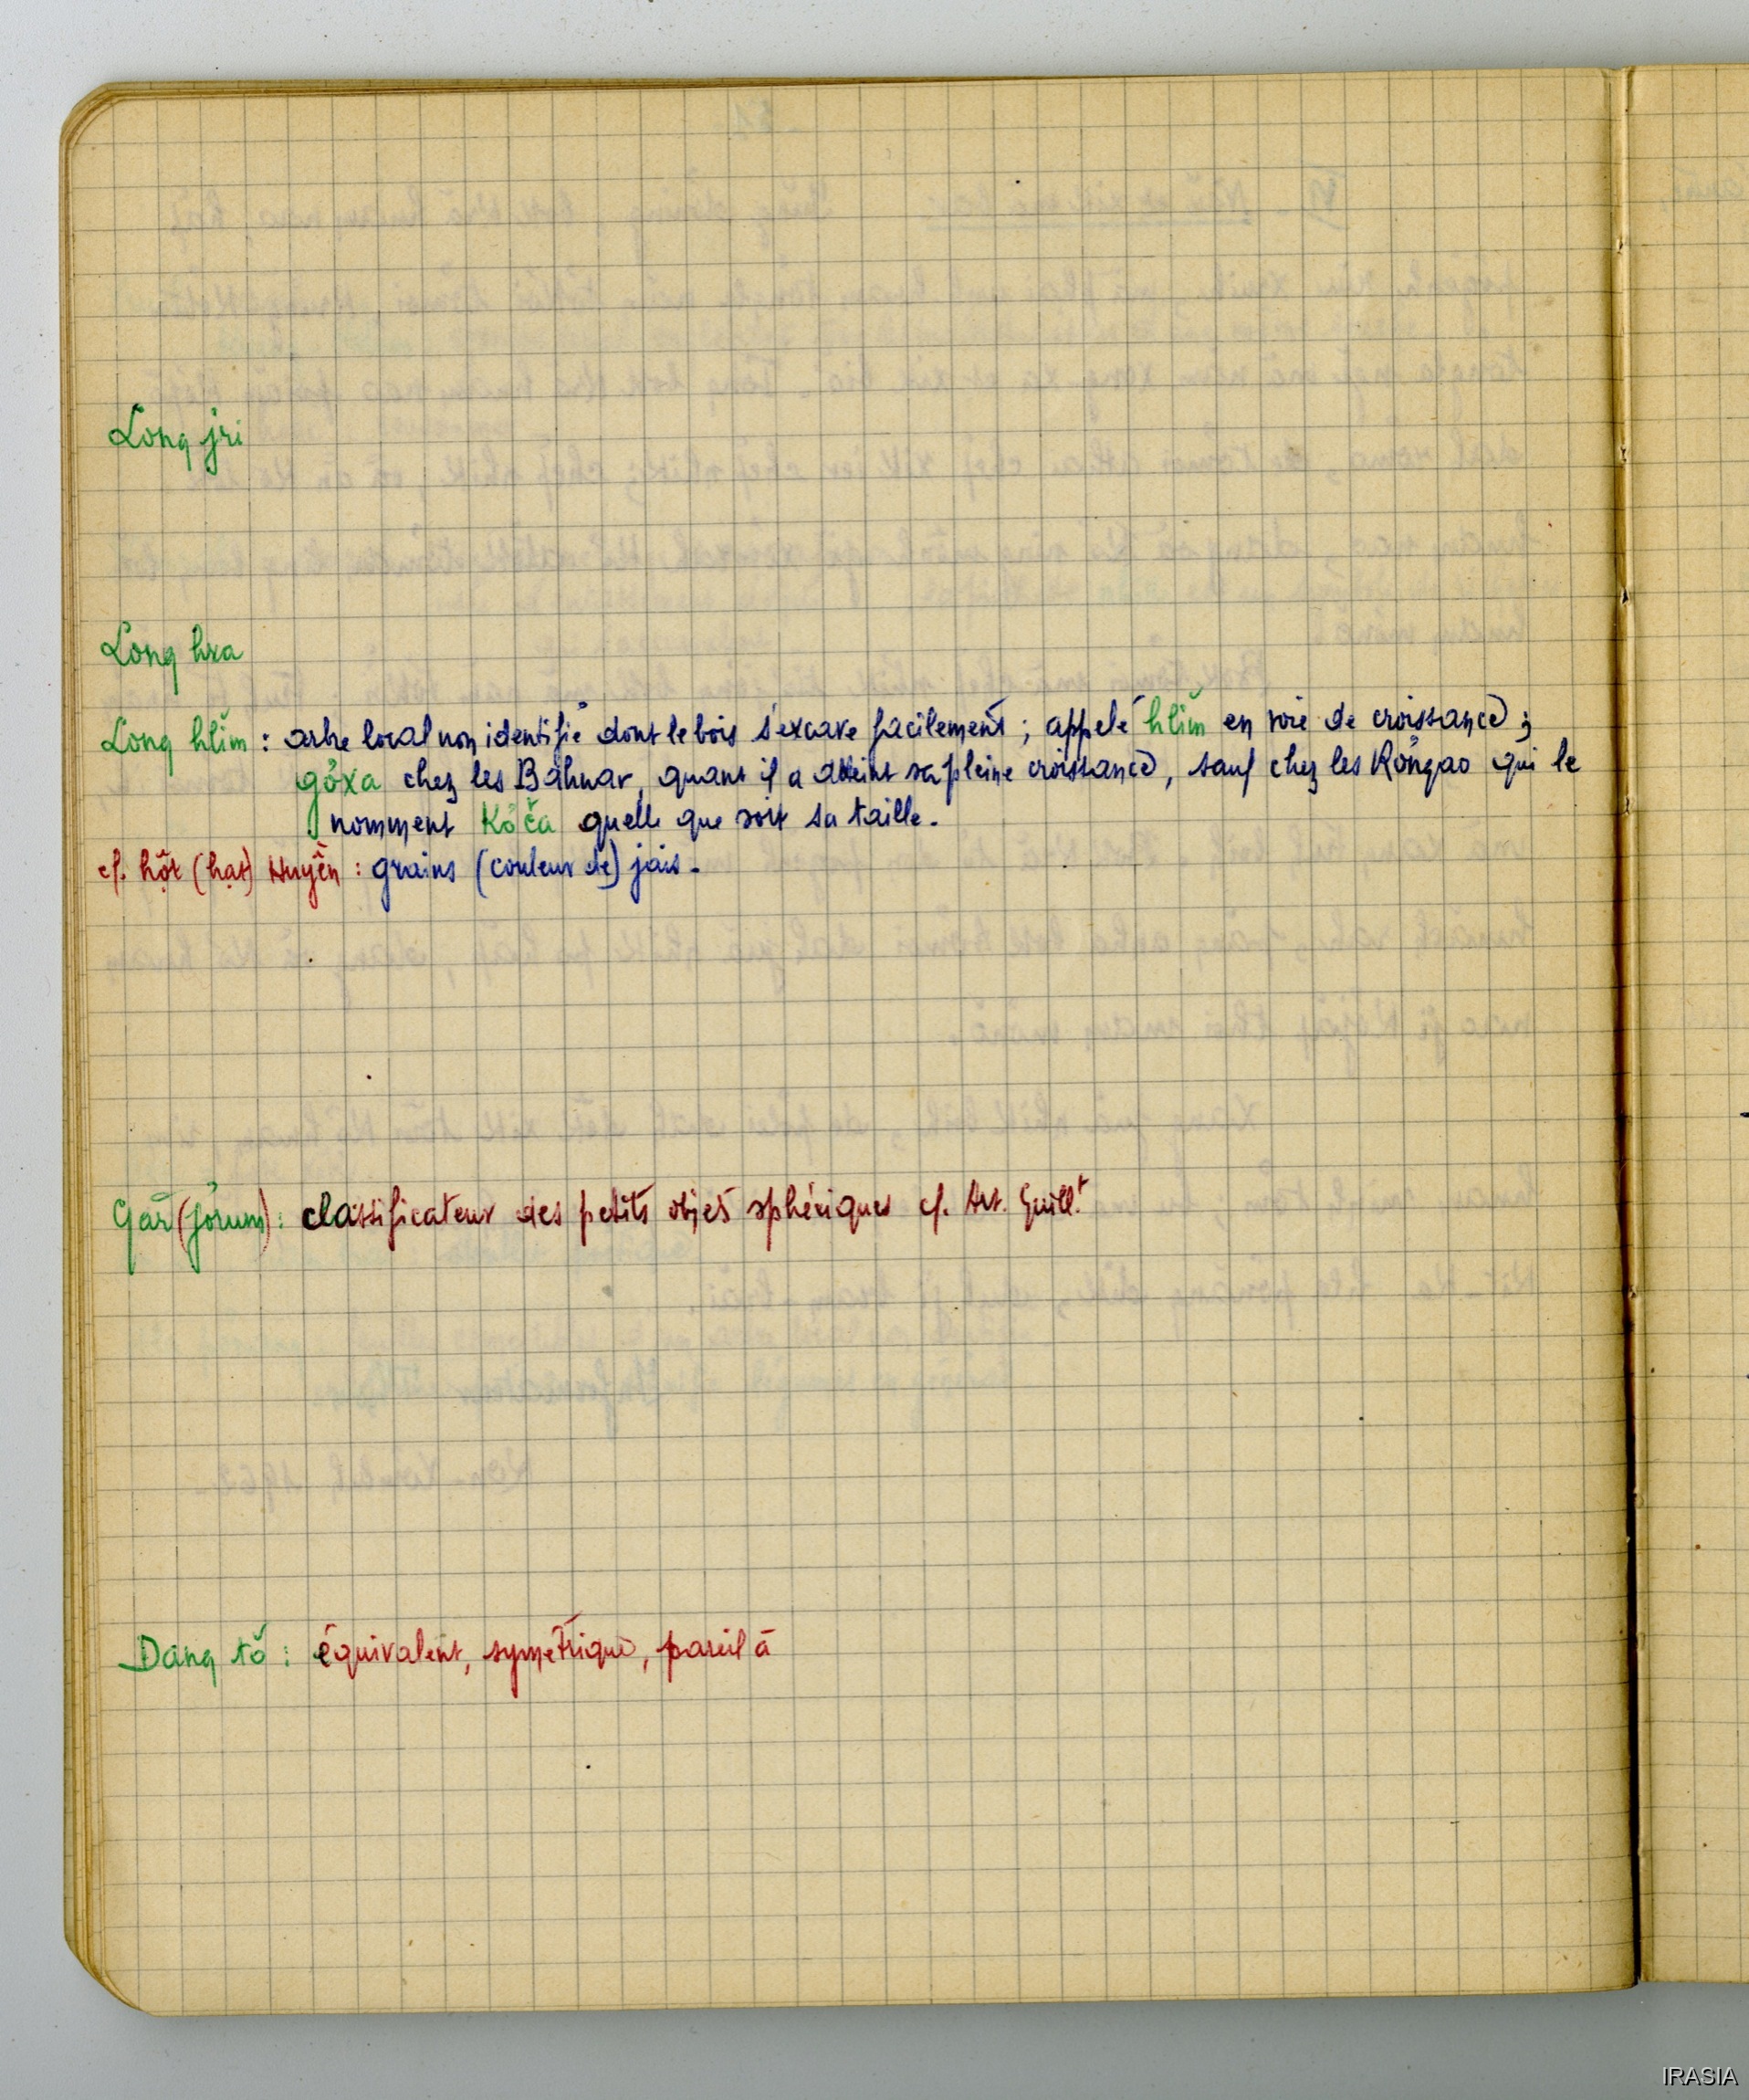 Long jri
Long hra
Long hlim : arbre local non identifié dont le bois s'excave facilement ; appelé hlim en voie de croissance ;
gơxa chez les Bahnar, quant il a atteint sa pleine croissance, sauf chez les Rơngao qui le
nomment Kơča quelle que soit sa taille.
cf. hột (hạt) Huyền : grains (couleur de) jais.
Găr (jơrum) : classificateur des petits objets sphériques cf. Art. Guill.t
Dang tŏ : équivalent, symétrique, pareil à
IRASIA